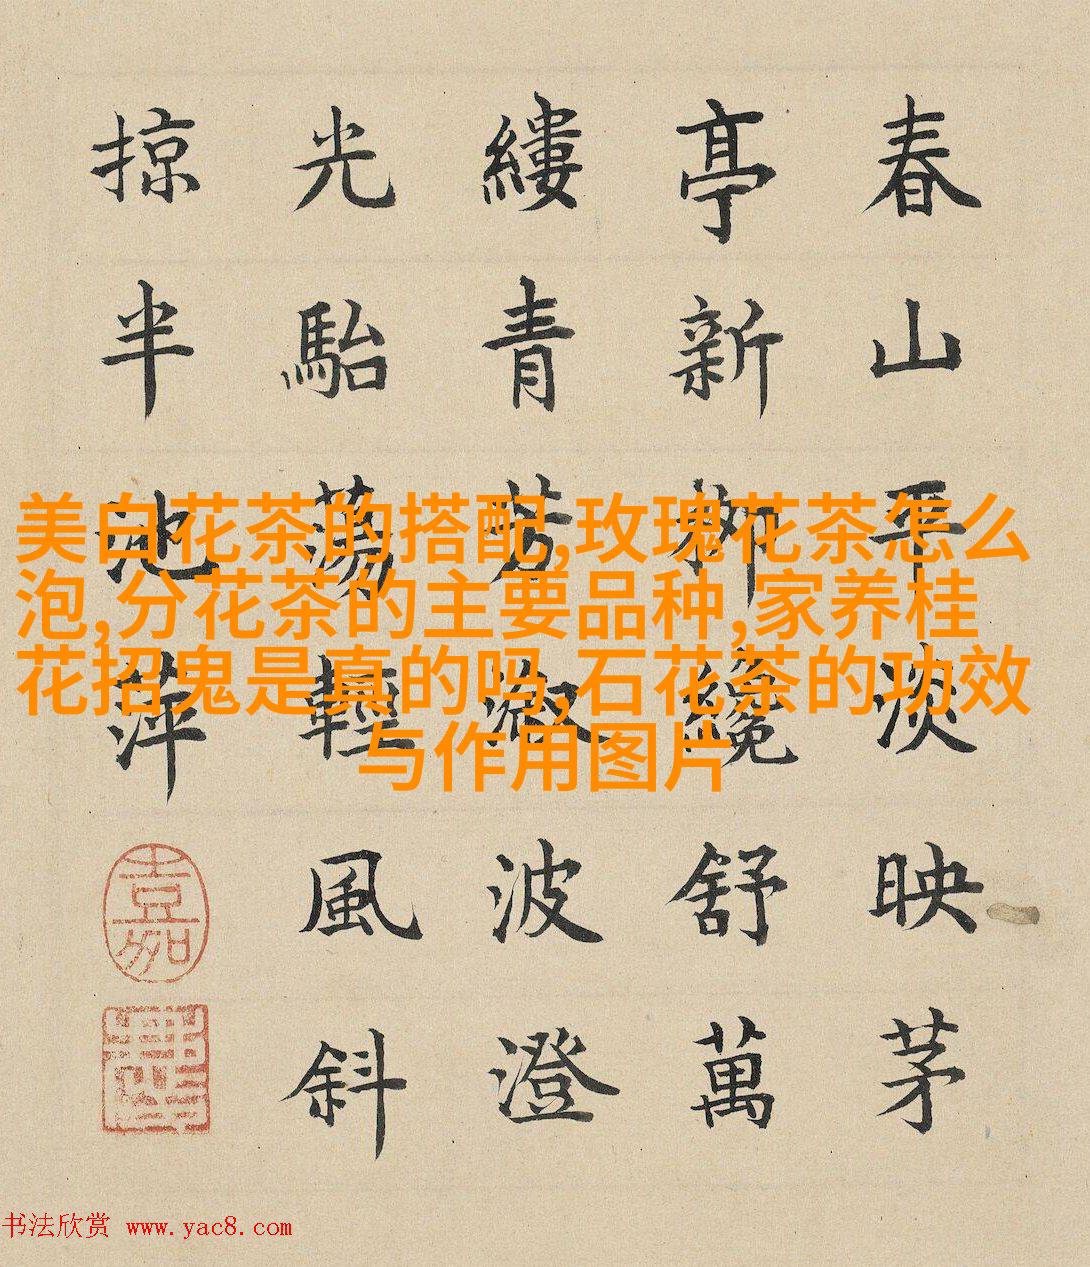 春山平淡映茅
亭新柳纜舒萬
縷青芳溆波澄
光駘蕩輕風斜
掠半池萍
嘉
美白花茶的搭配,玫瑰花茶怎么
泡,分花茶的主要品种,家养桂
花招鬼是真的吗,石花茶的功效
与作用图片
书法欣赏 www.yac8.com